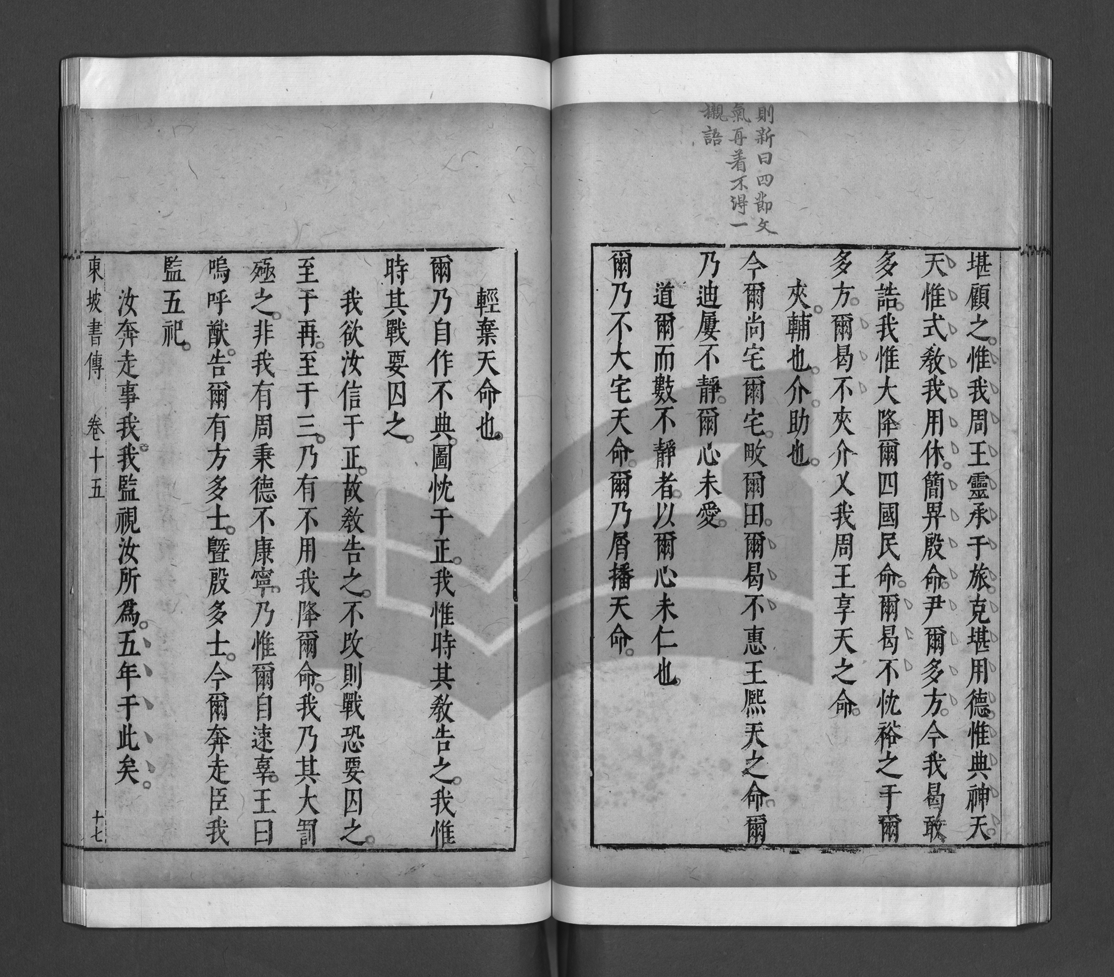 則新曰四節文
氣再着不得一
襯語
堪顧之惟我周王靈承于旅克堪用德惟典神天
天惟式教我用休簡畀殷命尹爾多方今我曷敢
多誥我惟大降爾四國民命爾曷不忱裕之于爾
多方爾曷不夾介乂我周王享天之命
夾輔也介助也
今爾尚宅爾宅畋爾田爾曷不惠王熈天之命爾
乃迪屢不靜爾心未愛
道爾而數不靜者以爾心未仁也
爾乃不大宅天命爾乃屑播天命
輕棄天命也
爾乃自作不典圖忱于正我惟時其教告之我惟
時其戰要囚之
我欲汝信于正故教告之不改則戰恐要囚之
至于再至于三乃有不用我降爾命我乃其大罰
殛之非我有周秉德不康寧乃惟爾自速辜王曰
嗚呼猷告爾有方多士曁殷多士今爾奔走臣我
監五祀
汝奔走事我我監視汝所爲五年于此矣
東坡書傳 卷十五 十七